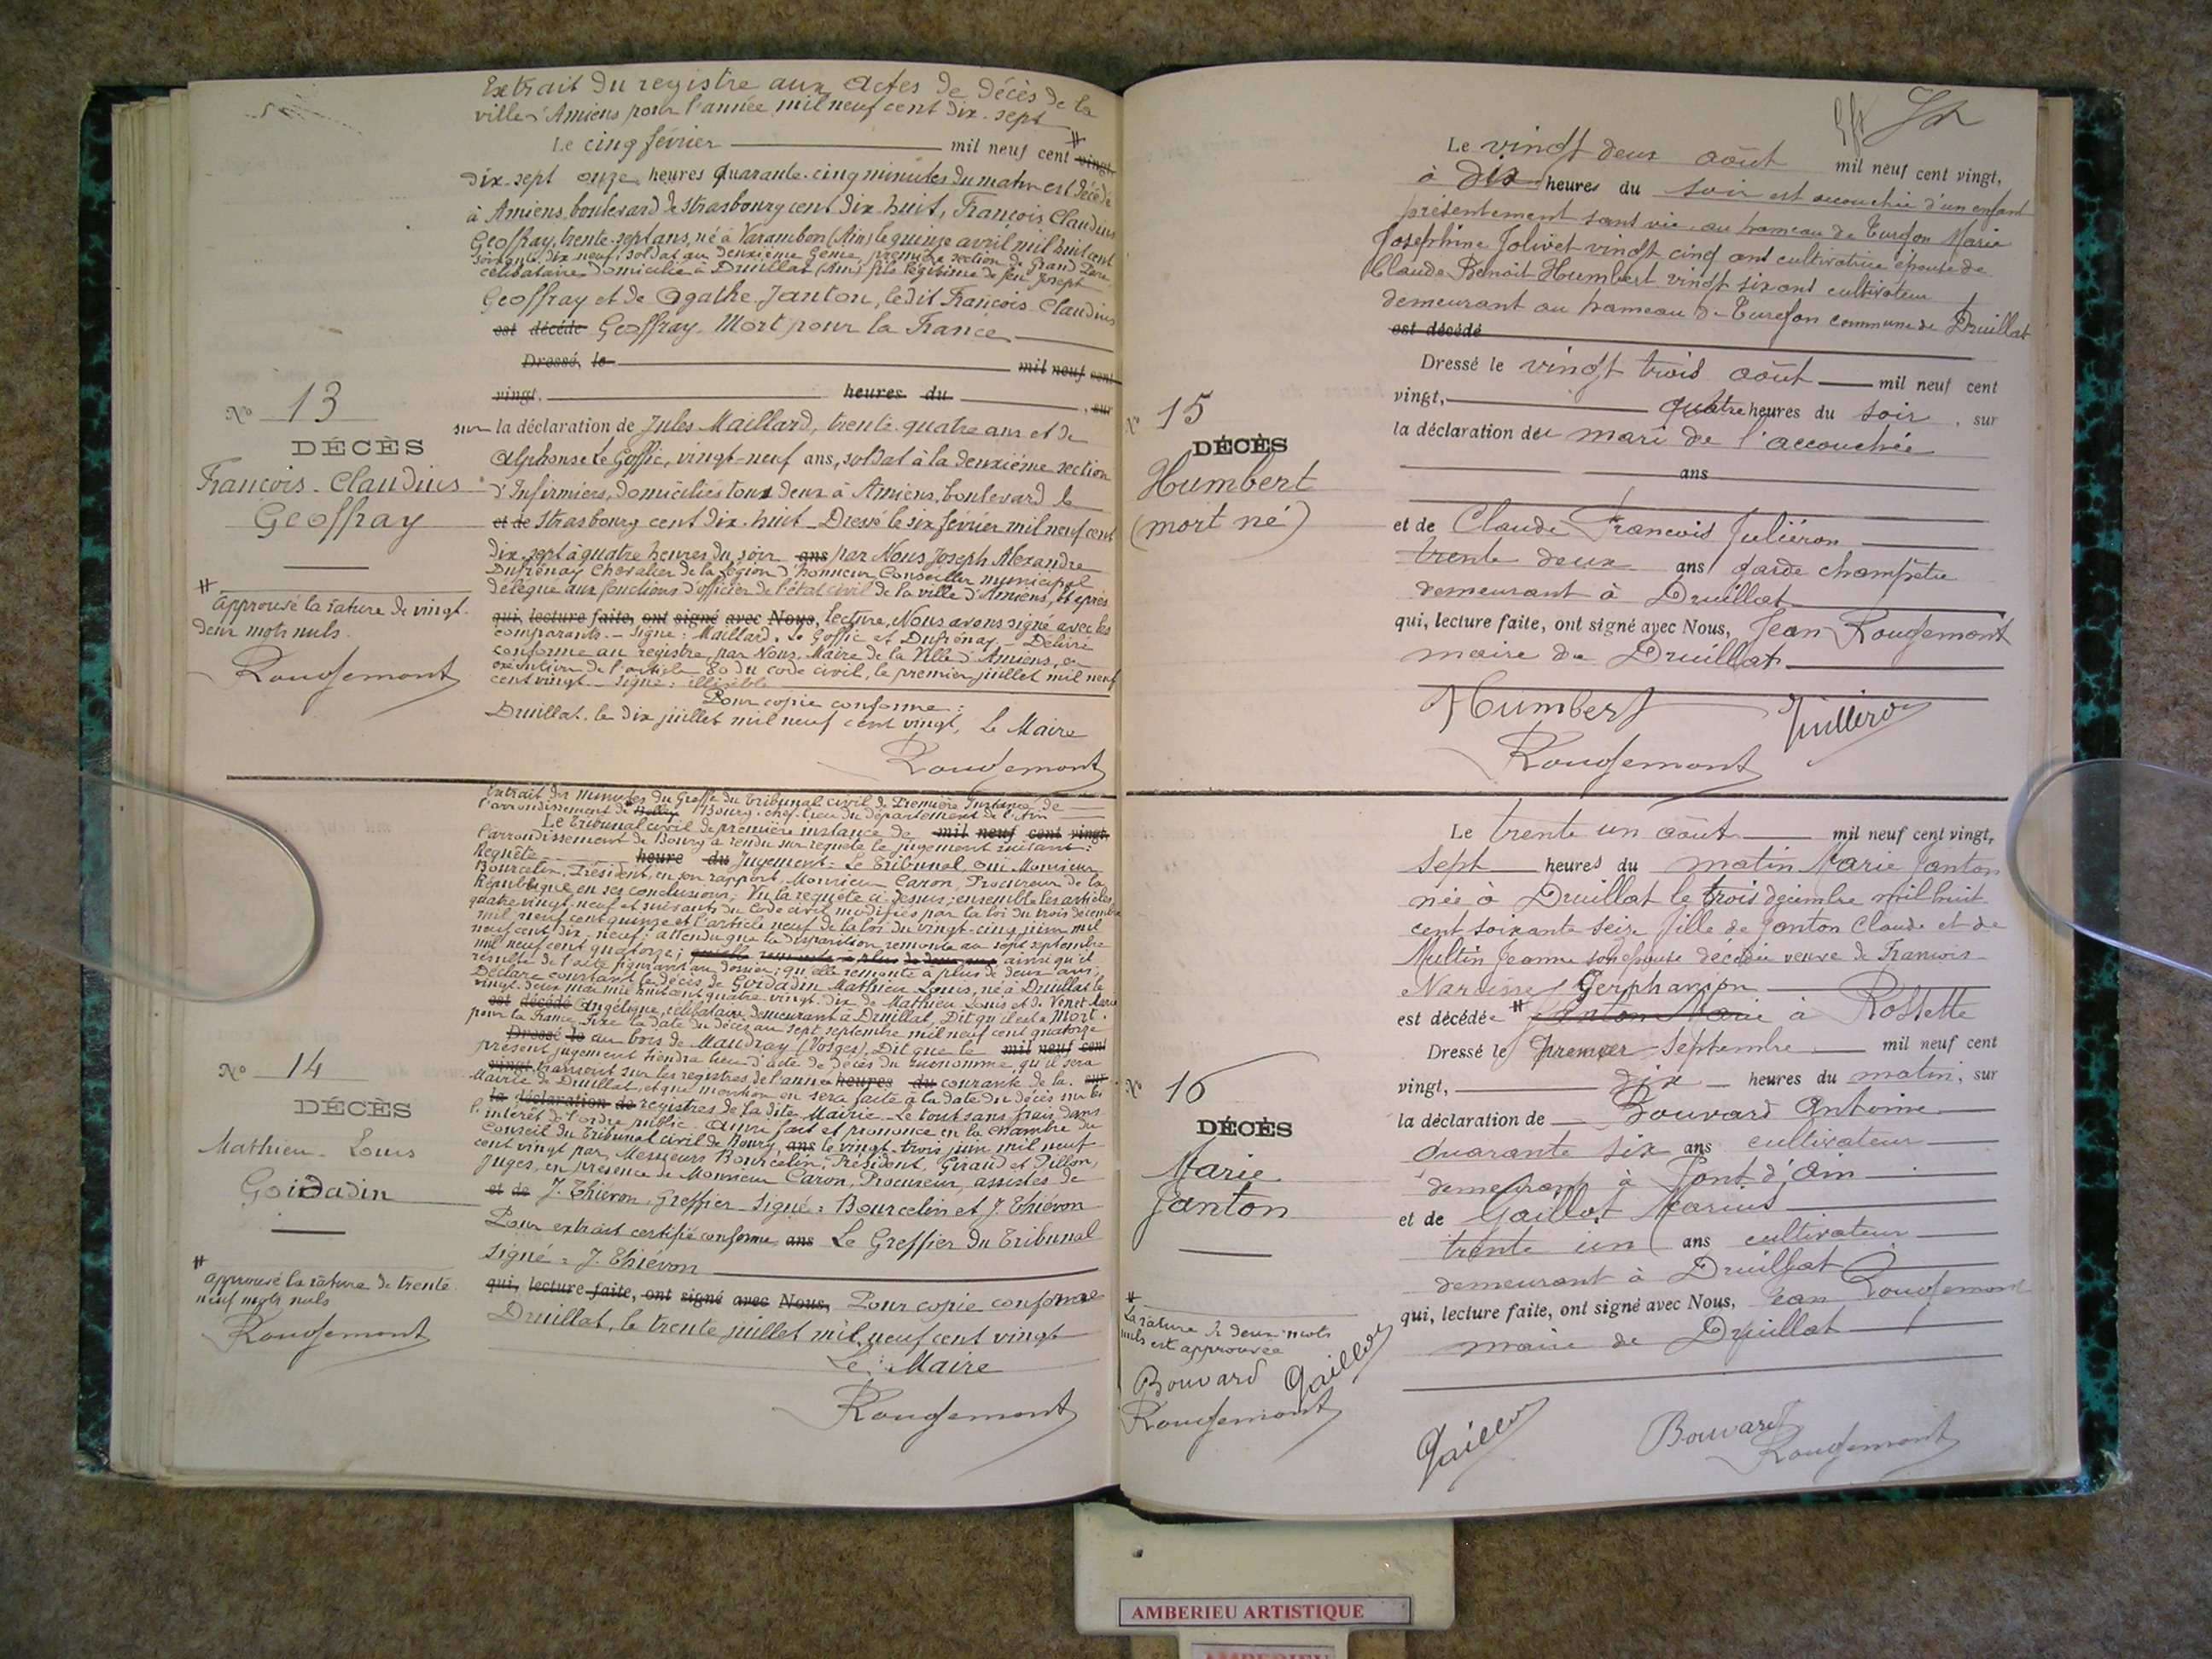 Extrait du registre aux Actes de décès de la
ville d'Amiens pour l'année mil neuf cent dix-sept
Le cinq février mil neuf cent vingt,
dix-sept onze heures quarante-cinq minutes du matin est décédé
à Amiens boulevard de Strasbourg cent dix-huit, François Claudius
Geoffray, trente-sept ans, né à Varambon (Ain) le quinze avril mil huit cent
soixante dix neuf, soldat au deuxième Génie, première section de
célibataire domicilié à Druillat (Ain) fils légitime de feu Joseph
Geoffray et de Agathe Janton, ledit François-Claudius
est décédé Geoffray. Mort pour la France
Dressé, le mil neuf cent
vingt, heures du , sur
N° 13
DÉCÈS
François-Claudius
Geoffray
# approuvé la rature de vingt
deux mots nuls.
Rougemont
sur la déclaration de Jules Maillard, trente-quatre ans et de
Alphonse Le Goffic, vingt-neuf ans, soldat à la deuxième section
d'Infirmiers, domiciliés tous deux à Amiens, boulevard de
et de Strasbourg cent dix-huit _ Dressé le six février mil neuf cent
dix-sept à quatre heures du soir ans par Nous Joseph Alexandre
Dufrénay Chevalier de la Légion d'honneur Conseiller municipal
délégué aux fonctions d'officier de l'état civil de la ville d'Amiens, et après
qui, lecture faite, ont signé avec Nous, lecture, Nous avons signé avec les
comparants. - Signé : Maillard, Le Goffic et Dufrénay - Délivré
conforme au registre, par Nous, Maire de la Ville d'Amiens, en
exécution de l'article 80 du code civil, le premier juillet mil neuf
cent vingt _ Signé : illisible
Pour copie conforme :
Druillat, le dix juillet mil neuf cent vingt, Le Maire
Rougemont
Extrait des minutes du Greffe du Tribunal civil de Première Instance de
l'arrondissement de Bourg, chef-lieu du département de l'Ain
Le Tribunal civil de première instance de mil neuf cent vingt,
l'arrondissement de Bourg a rendu sur requête le jugement suivant :
Requête heure du Jugement = Le Tribunal, Oui Monsieur
Bourcelin, Président, en son rapport, Monsieur Caron, Procureur de la
République en ses conclusions ; Vu la requête ci-dessus ; ensemble les articles
quatre vingt-neuf et suivants du Code civil modifiés par la loi du trois décembre
mil neuf cent quinze et l'article neuf de la loi du vingt-cinq juin mil
neuf cent dix-neuf ; attendu que la disparition remonte au sept septembre
mil neuf cent quatorze ; ainsi qu'il
résulte de l'acte figurant au dossier ; qu'elle remonte à plus de deux ans ;
Déclare constant le décès de Goidadin Mathieu Louis, né à Druillat le
vingt-deux mai mil huit cent quatre-vingt-dix de Mathieu Louis et de Venet Marie
est décédé Angélique, célibataire demeurant à Druillat, Dit qu'il est « Mort
pour la France. Fixe la date du décès au sept septembre mil neuf cent quatorze
Dressé le au bois de Mandray (Vosges), Dit que le mil neuf cent
présent jugement tiendra lieu d'acte de décès du susnommé qu'il sera
vingt, transcrit sur les registres de l'année heures du courante de la sur
Mairie de Druillat, et que mention en sera faite à la date du décès sur les
la déclaration de registres de la dite Mairie. Le tout sans frais dans
l'intérêt de l'ordre public. Ainsi fait et prononcé en la chambre du
Conseil du Tribunal civil de Bourg, ans le vingt-trois juin mil neuf
cent vingt par Messieurs Bourcelin, Président, Giraud et Pillon,
juges, en présence de Monsieur Caron, Procureur, assistés de
et de J. Thiévon, Greffier. Signé : Bourcelin et J. Thiévon
Pour extrait certifié conforme, ans Le Greffier du Tribunal
Signé : J. Thiévon
qui, lecture faite, ont signé avec Nous, Pour copie conforme
Druillat, le trente juillet mil neuf cent vingt
Le Maire
Rougemont
N° 14
DÉCÈS
Mathieu-Louis
Goidadin
# approuvé la rature de trente
neuf mots nuls
Rougemont
Le vingt deux août mil neuf cent vingt,
à dix heures du soir est accouchée d'un enfant
présentement sans vie au hameau de Turgon Marie
Josephine Jolivet vingt cinq ans cultivatrice épouse de
Claude Benoit Humbert vingt six ans cultivateur
demeurant au hameau de Turgon commune de Druillat
est décédé
Dressé le vingt trois août mil neuf cent
vingt, quatre heures du soir , sur
la déclaration du mari de l'accouchée
ans
et de Claude François Juliéron
trente deux ans garde champêtre
demeurant à Druillat
qui, lecture faite, ont signé avec Nous, Jean Rougemont
maire de Druillat
Humbert Juilleron
Rougemont
N° 15
DÉCÈS
Humbert
(mort né)
Le trente un août mil neuf cent vingt,
sept heures du matin Marie Janton
née à Druillat le trois décembre mil huit
cent soixante seize fille de Janton Claude et de
Multin Jeanne son épouse décédée veuve de François
Narcisse Gerphanion
est décédée # Janton Marie à Rossette
Dressé le premier septembre mil neuf cent
vingt, dix heures du matin, sur
la déclaration de Bouvard Antoine
quarante six ans cultivateur
demeurant à Pont d'Ain
et de Gaillot Marius
trente un ans cultivateur
demeurant à Druillat
qui, lecture faite, ont signé avec Nous, Jean Rougemont
maire de Druillat
N° 16
DÉCÈS
Marie
Janton
# La rature de deux mots
nuls est approuvée
Bouvard Gaillot
Rougemont
Gaillot Bouvard
Rougemont
AMBERIEU ARTISTIQUE
AMBERIEU